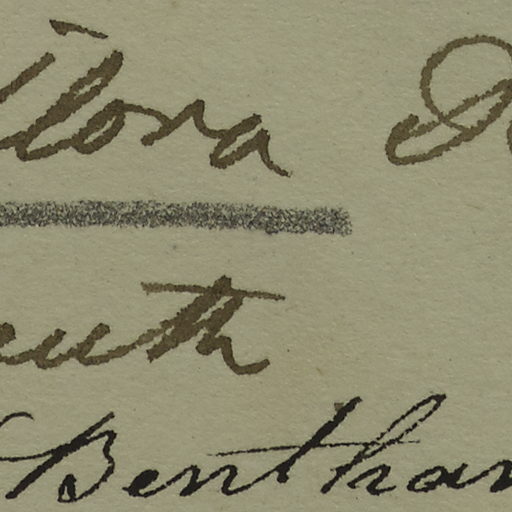 lora
euth
Benthan